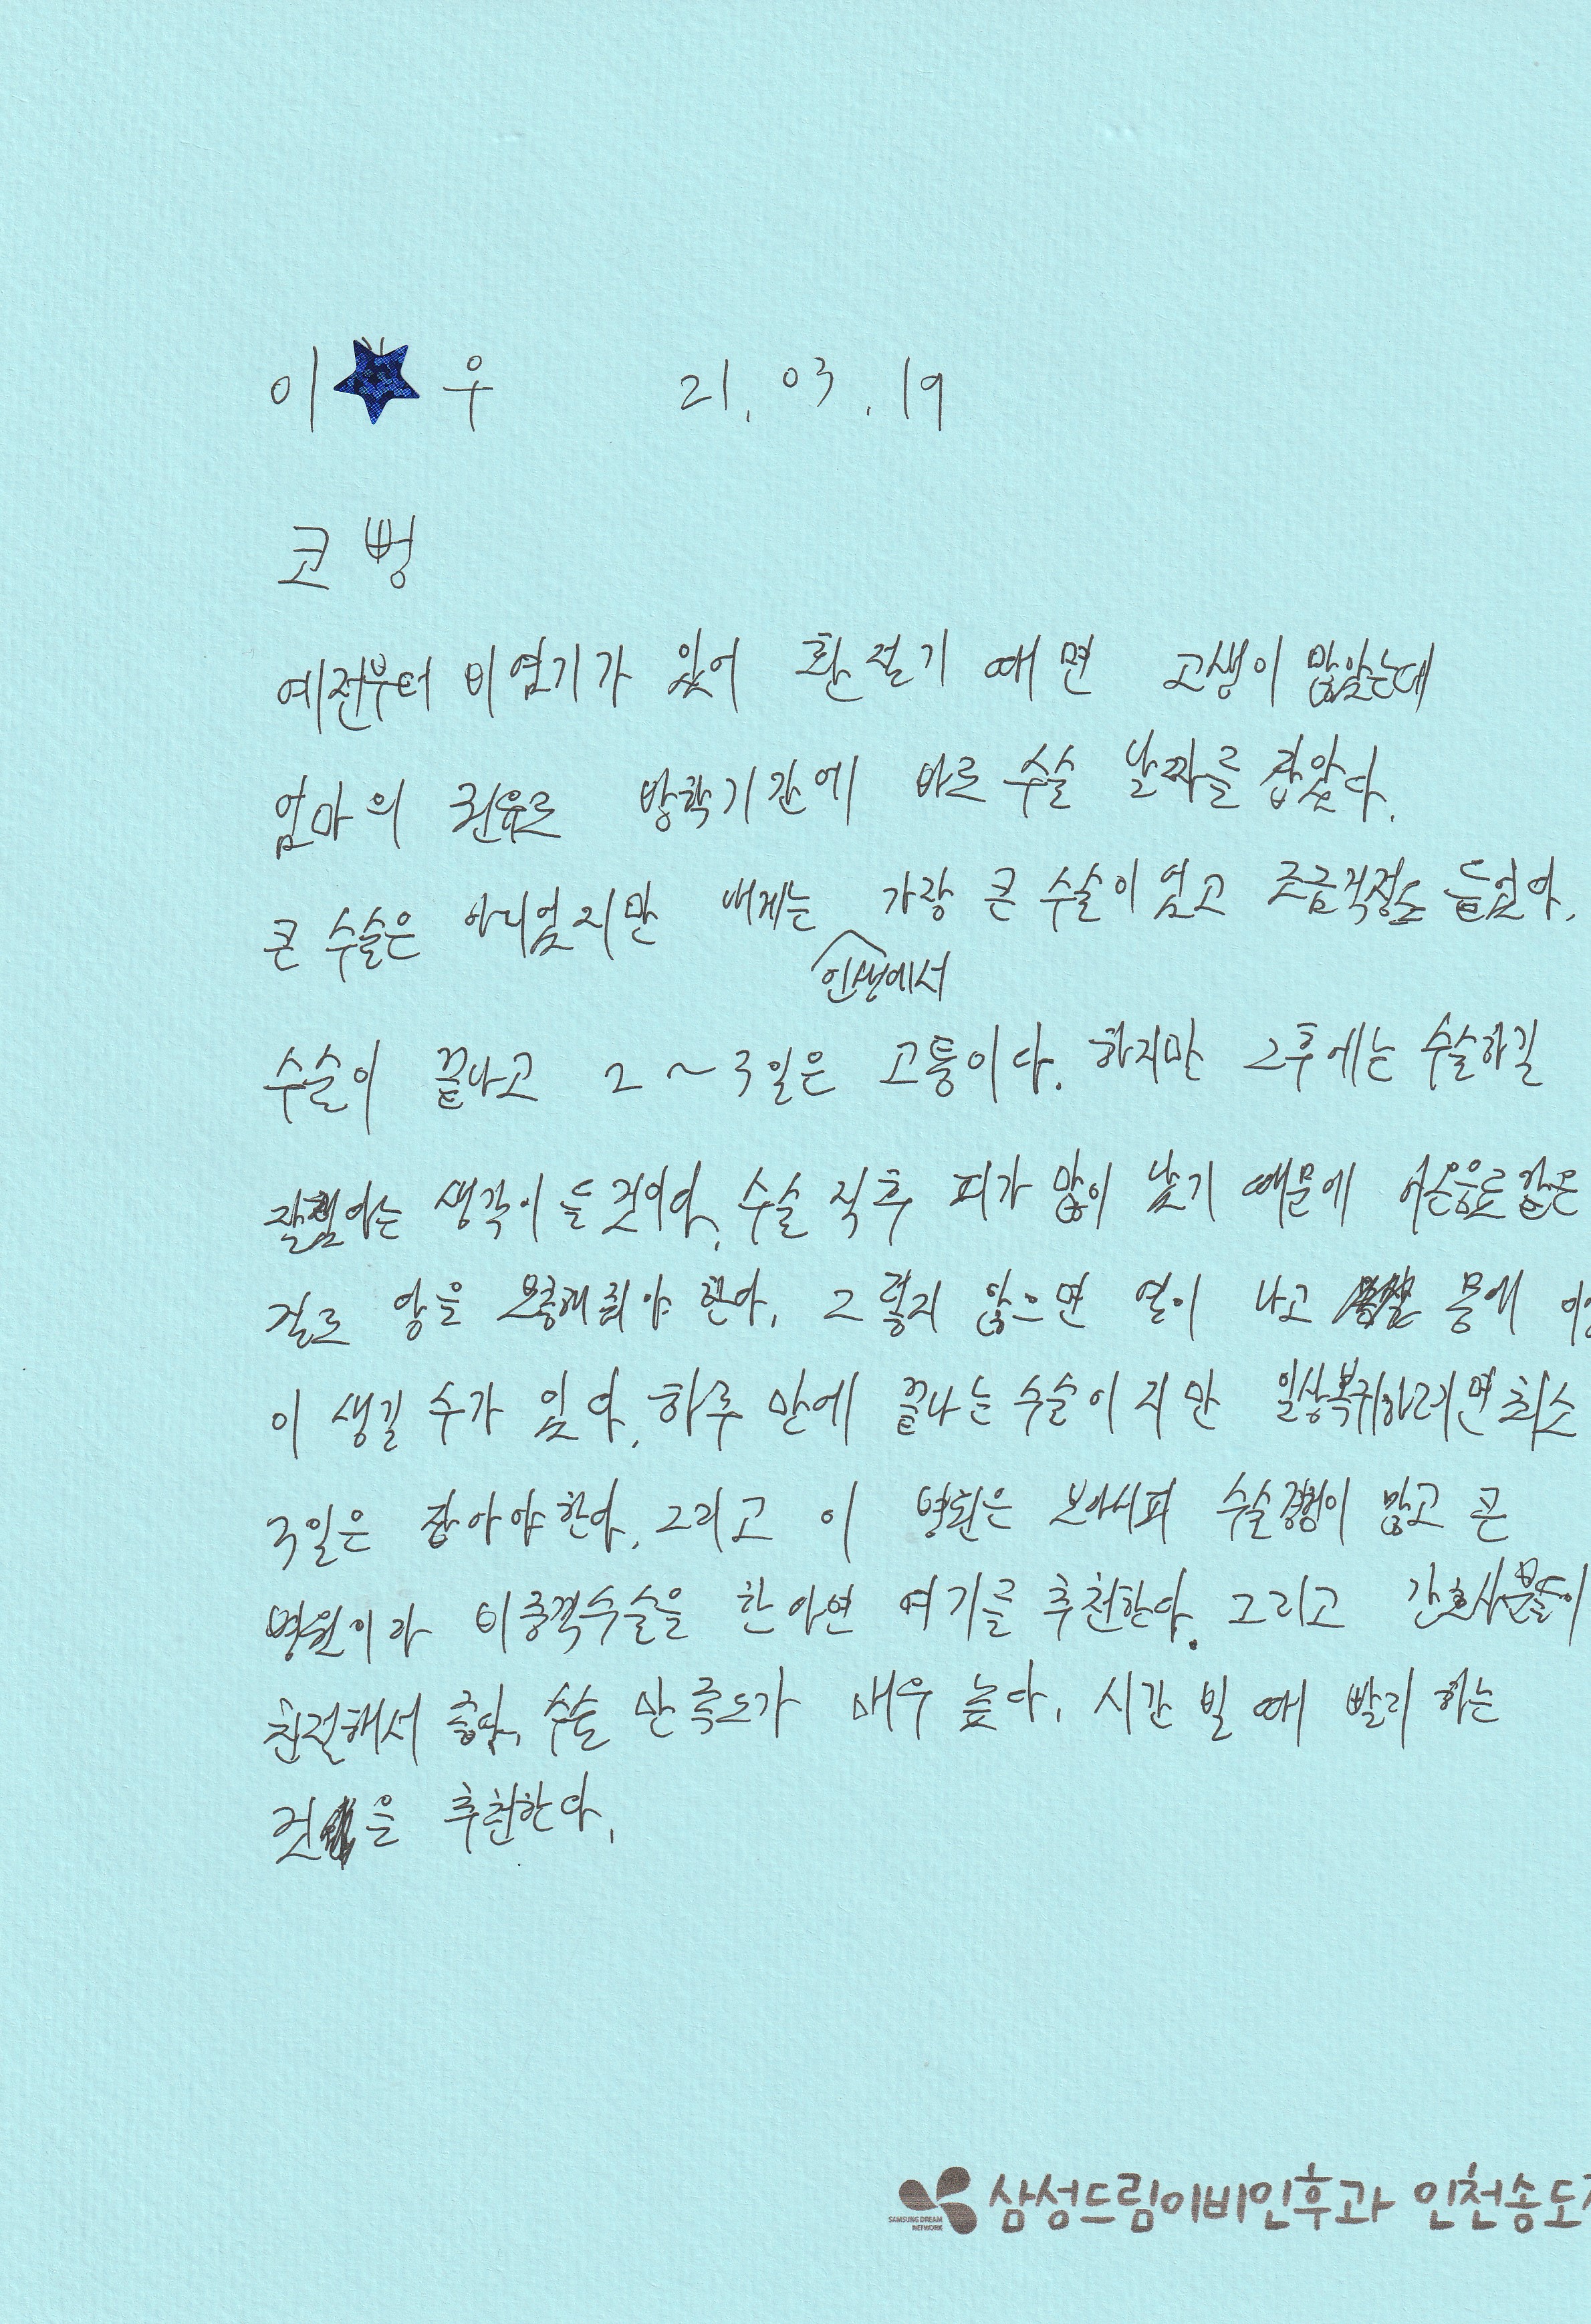 이 우 21.03.19
코 뻥
예전부터 비염기가 있어 환절기 때면 고생이 많았는데
엄마의 권유로 방학기간에 바로 수술 날짜를 잡았다.
큰 수술은 아니었지만 내게는 가장 큰 수술이였고 조금걱정도 들었다.
인생에서
수술이 끝나고 2~3일은 고통이다. 하지만 그후에는 수술하길
잘했다는 생각이 들것이다. 수술 직후 피가 많이 났기 때문에 이온음료같은
걸로 당을 보충해줘야 한다. 그렇지 않으면 열이 나고 몸에
이 생길 수가 있다. 하루 만에 끝나는 수술이지만 일상복귀하려면 최소
3일은 잡아야한다. 그리고 이 병원은 보다시피 수술경험이 많고 큰
병원이라 비중격수술을 한다면 여기를 추천한다. 그리고 간호사분들이
친절해서 좋다. 수술 만족도가 매우 높다. 시간 빌 때 빨리 하는
것을 추천한다.
SAMSUNG DREAM NETWORK 삼성드림이비인후과 인천송도